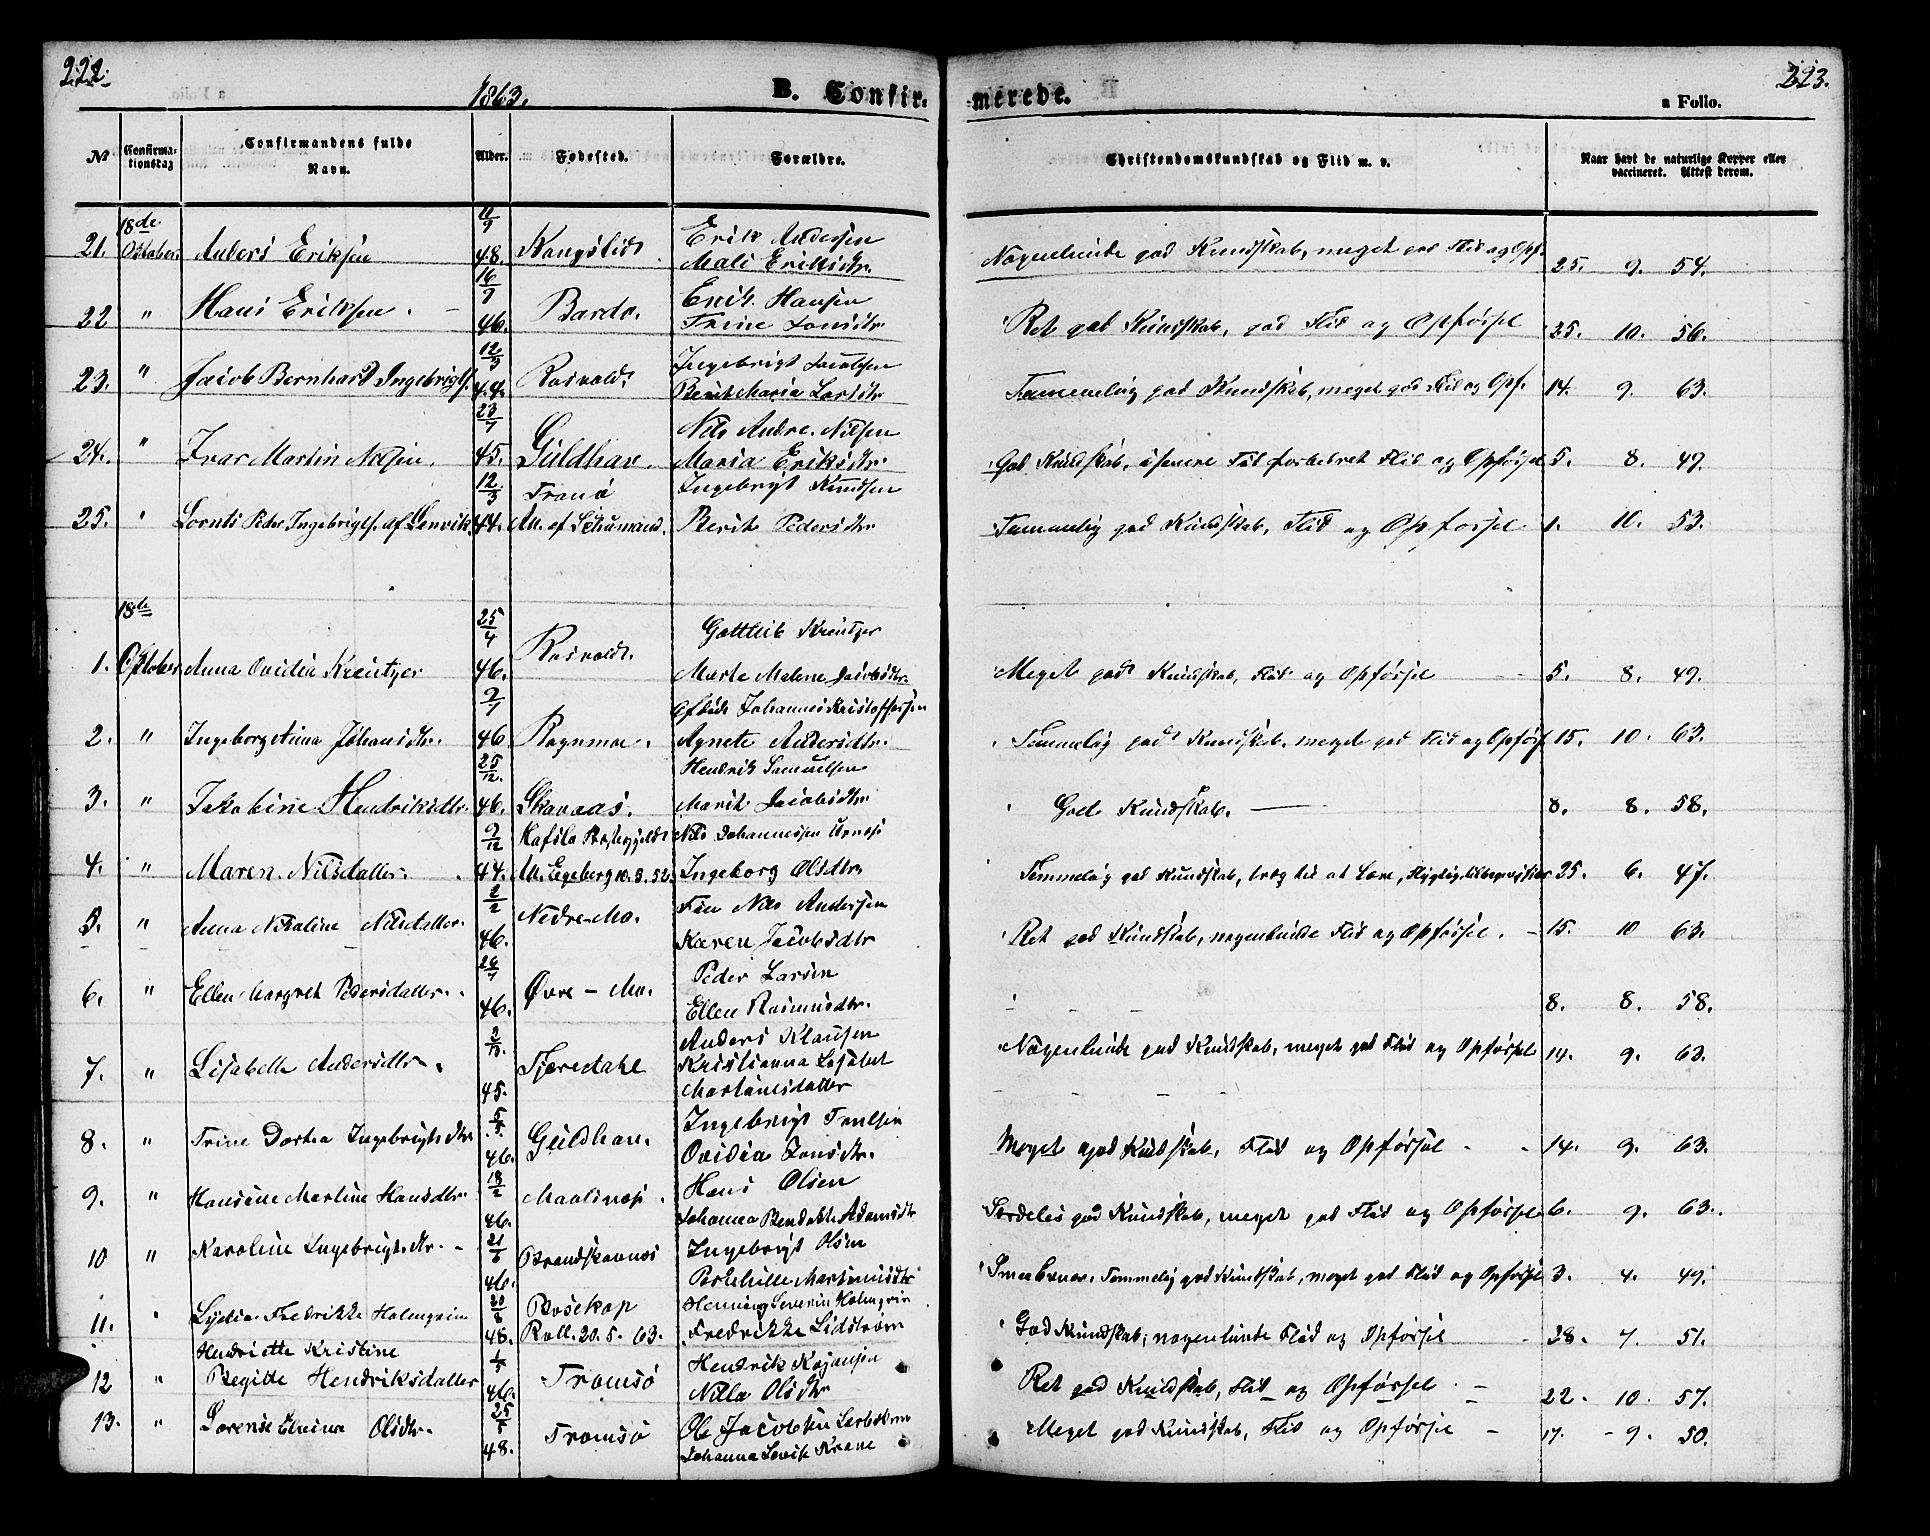 222.
1863.
B. Confir-
merede.
a Folio.
223.
No
Confirma-
tionsdag
Confirmandens fulde
Navn.
Alder.
Fødested.
Forældre.
Christendomskundskab og Flid m. v.
Naar havt de naturlige Kopper eller
vaccineret. Attest derom.
21. 18de Oktober Anders Eriksen 11/9 48. Kongslid Erik Andersen
Mali Eriksdtr. Nogenlunde god Kundskab, meget god Flid og Opf. 25. 9. 54.
22 " Hans Eriksen. 16/9 46. Bardo. Erik Hansen
Trine Jonsdtr Ret god Kundskab, god Flid og Opførsel 25. 10. 56.
23. " Jacob Bernhard Ingebrigts. 12/3 44. Rosvold. Ingebrigt Jacobsen
Berit Maria Larsdtr Temmelig god Kundskab, meget god Flid og Opf. 14. 9. 63.
24. " Ivar Martin Nilsen. 23/1 45. Guldhav. Nils Andr. Nilsen
Maria Eriksdtr God Kundskab, i senere Tid forbedret Flid og Opførsel 5. 8. 49.
25. " Lornts Peder Ingebrigts. af Lenvik 12/3 44. Tranø
Att. af Schumann. Ingebrigt Knudsen
Berit Pedersdtr Temmelig god Kundskab, Flid og Opførsel 1. 10. 53.
18de
1. Oktober Anna Ovidia Kreutzer 25/4 46. Rosvold. Gottlieb Kreutzer
Marte Malene Jacobsdtr. Meget god Kundskab, Flid og Opførsel 5. 8. 49.
2. " Ingeborg Anna Johansdtr. 9/1 46 Rognmoe. Afdøde Johannes Kristoffersen
Agnete Andersdtr. Temmelig god Kundskab, meget god Flid og Opførs. 15. 10. 63.
3. " Jakobine Hendriksdtr. 25/12. 46. Skavaas. Hendrik Samuelsen
Marit Jacobsdtr God Kundskab. 8. 8. 58.
4. " Maren Nilsdatter. 9/12 44. Hafslo Præstegjeld
Att. Egeberg 10. 5. 52. Nils Johannessen
Ingeborg Olsdtr Temmelig god Kundskab, træg til at Lære, 25. 6. 47.
5. " Anna Nikoline Nilsdatter. 2/2 46. Nedre-Mo. Nils Andersen
Karen Jacobsdtr Ret god Kundskab, nogenlunde Flid og Opførsel. 15. 10 63.
6. " Ellen Margret Pedersdatter. 46. Øvre-Mo. Peder Larsen
Ellen Rasmusdtr. 8. 8. 58.
7. " Lisabeth Andersdtr. 45. Tjeredahl Anders Klausen
Kristianna Lisabet
Martinesdatter Nogenlunde god Kundskab, meget god Flid og Opførsel 14. 9. 63.
8. " Trine Dortea Ingebrigtsdtr 5/5. 46. Guldhav. Ingebrigt Troelsen
Ovidia Jonsdtr. Meget god Kundskab, Flid og Opførsel 14. 9. 63.
9. " Hansine Martine Hansdtr. 18/2 46. Maalsnes. Hans Olsen
Johanna Bendikte Adamsdtr Særdeles god Kundskab, meget god Flid og Opførsel 6. 9. 63.
10 " Karoline Ingebrigtsdtr. 46. Brandskovnes Ingebrigt Olsen
Martinusdtr Temmelig god Kundskab, meget god Flid og Opførsel 3. 4. 49.
11. " Lydia Fredrikke Holmgren 48. Bosekop
Att. 20. 5. 63. Henning Severin Holmgren
Fredrikke Lidstrøm God Kundskab, nogenlunde Flid og Opførsel 28. 7. 51.
12 " Henriette Kristine
Begitte Hendriksdatter 1/5 46. Tromsø Hendrik Kajansen
Nilla Olsdtr Ret god Kundskab, Flid og Opførsel. 22. 10. 57.
13. " Lorense Elenine Olsdtr. 25/5 48. Tromsø Ole Jacobsen
Johanna Lovise Krane Meget god Kundskab, Flid og Opførsel 17. 9. 50.